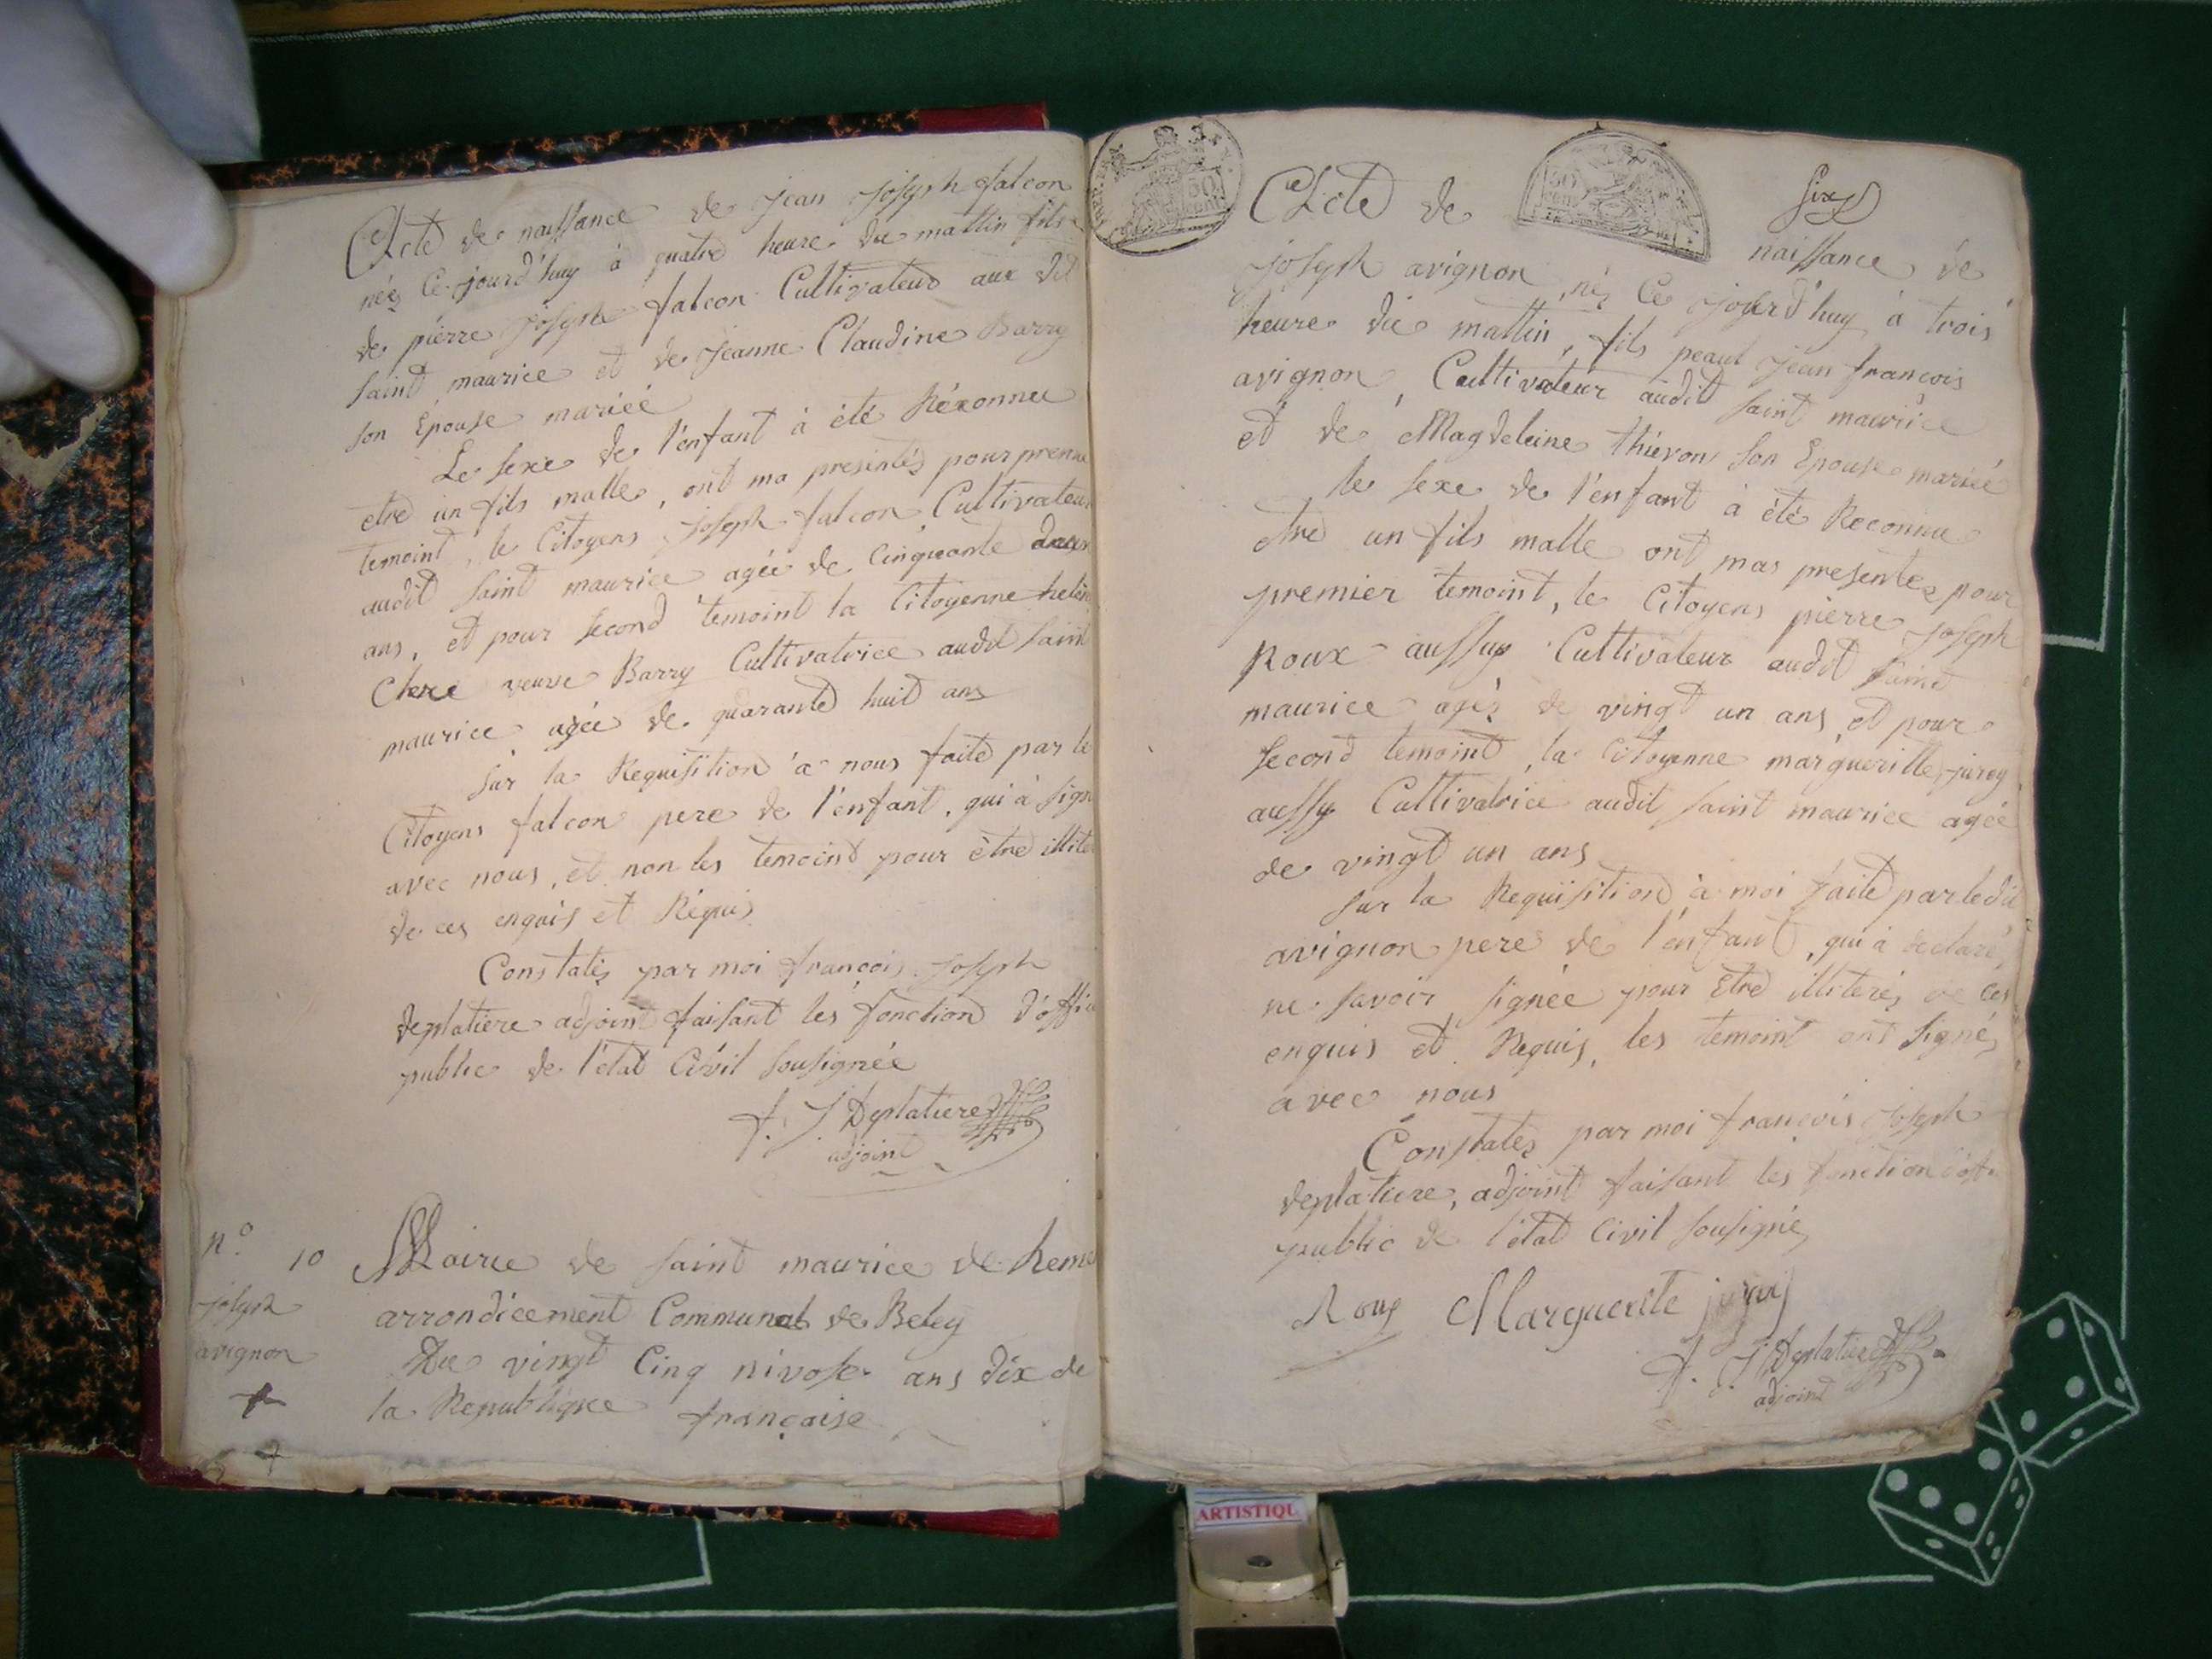 Acte de naissance de jean joseph falcon
néz Ce jourd'huy à quatre heure du mattin fils
de pierre joseph falcon Cultivateur aux dit
saint maurice et de jeanne Claudine Barry
son Epouse mariéé
Le sexe de l'enfant à été Réconnu
etre un fils malle, ont ma presintés pour premie
temoint, le Citoyens joseph falcon Cultivateur
audit saint maurice agée de Cinquante deux
ans, et pour second temoint la Citoyenne helein
Clere veuve Barry Cultivatrice audit saint
maurice agée de quarante huit ans
sur la Requisition à nous faite par le
Citoyens falcon pere de l'enfant, qui à sign
avec nous, et non les temoint pour être illite
de ces enquis et Réquis
Constatéz par moi françois joseph
deplatiere adjoint faisant les fonction d'offici
public de l'état Civil sousignée
f. J Deplatiere
adjoint
n.° 10 Mairie de saint maurice de heme
joseph arrondicement Communal de Beley
avignon Du vingt Cinq nivose ans dix de
la Republique française
30
Acte de
six
naissance de
joseph avignon néz Ce jourd'huy à trois
heure du mattin, fils jean françois
avignon, Cultivateur audit saint maurice
et de Magdeleine thievon son Epouse mariéé
le sexe de l'enfant à été Reconnu
etre un fils malle ont mas presentez pour
premier temoint, le Citoyens pierre joseph
Roux aussy Cultivateur audit saint
maurice agéz de vingt un ans, et pour
second temoint, la Citoyenne margueritte jurey
aussy Cultivatrice audit saint maurice agée
de vingt un ans
sur la Requisition à moi faite par ledit
avignon pere de l'enfant, qui à declaré,
ne savoir signée pour Etre illiteréz de ces
enquis et Requis, les temoint ont signéz
avec nous
Constatéz par moi françois joseph
deplatiere, adjoint faisant les fonction d'offi
public de l'état Civil sousignéz
Roux Marguerite
f. J Deplatiere
adjoint
ARTISTIQU